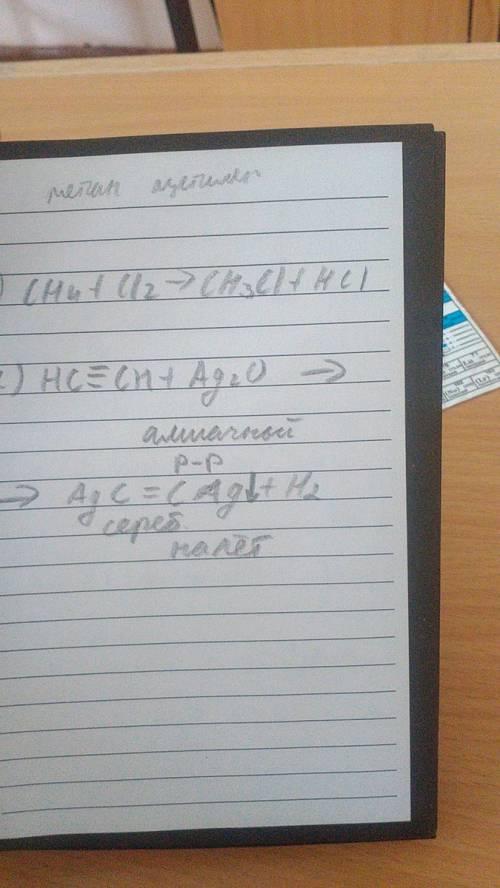 метан ацетилен
) CH4 + Cl2 → CH3Cl + HCl
2) HC≡CH + Ag2O →
амиачный
р-р
→ AgC=CAg↓ + H2
сереб.
налёт